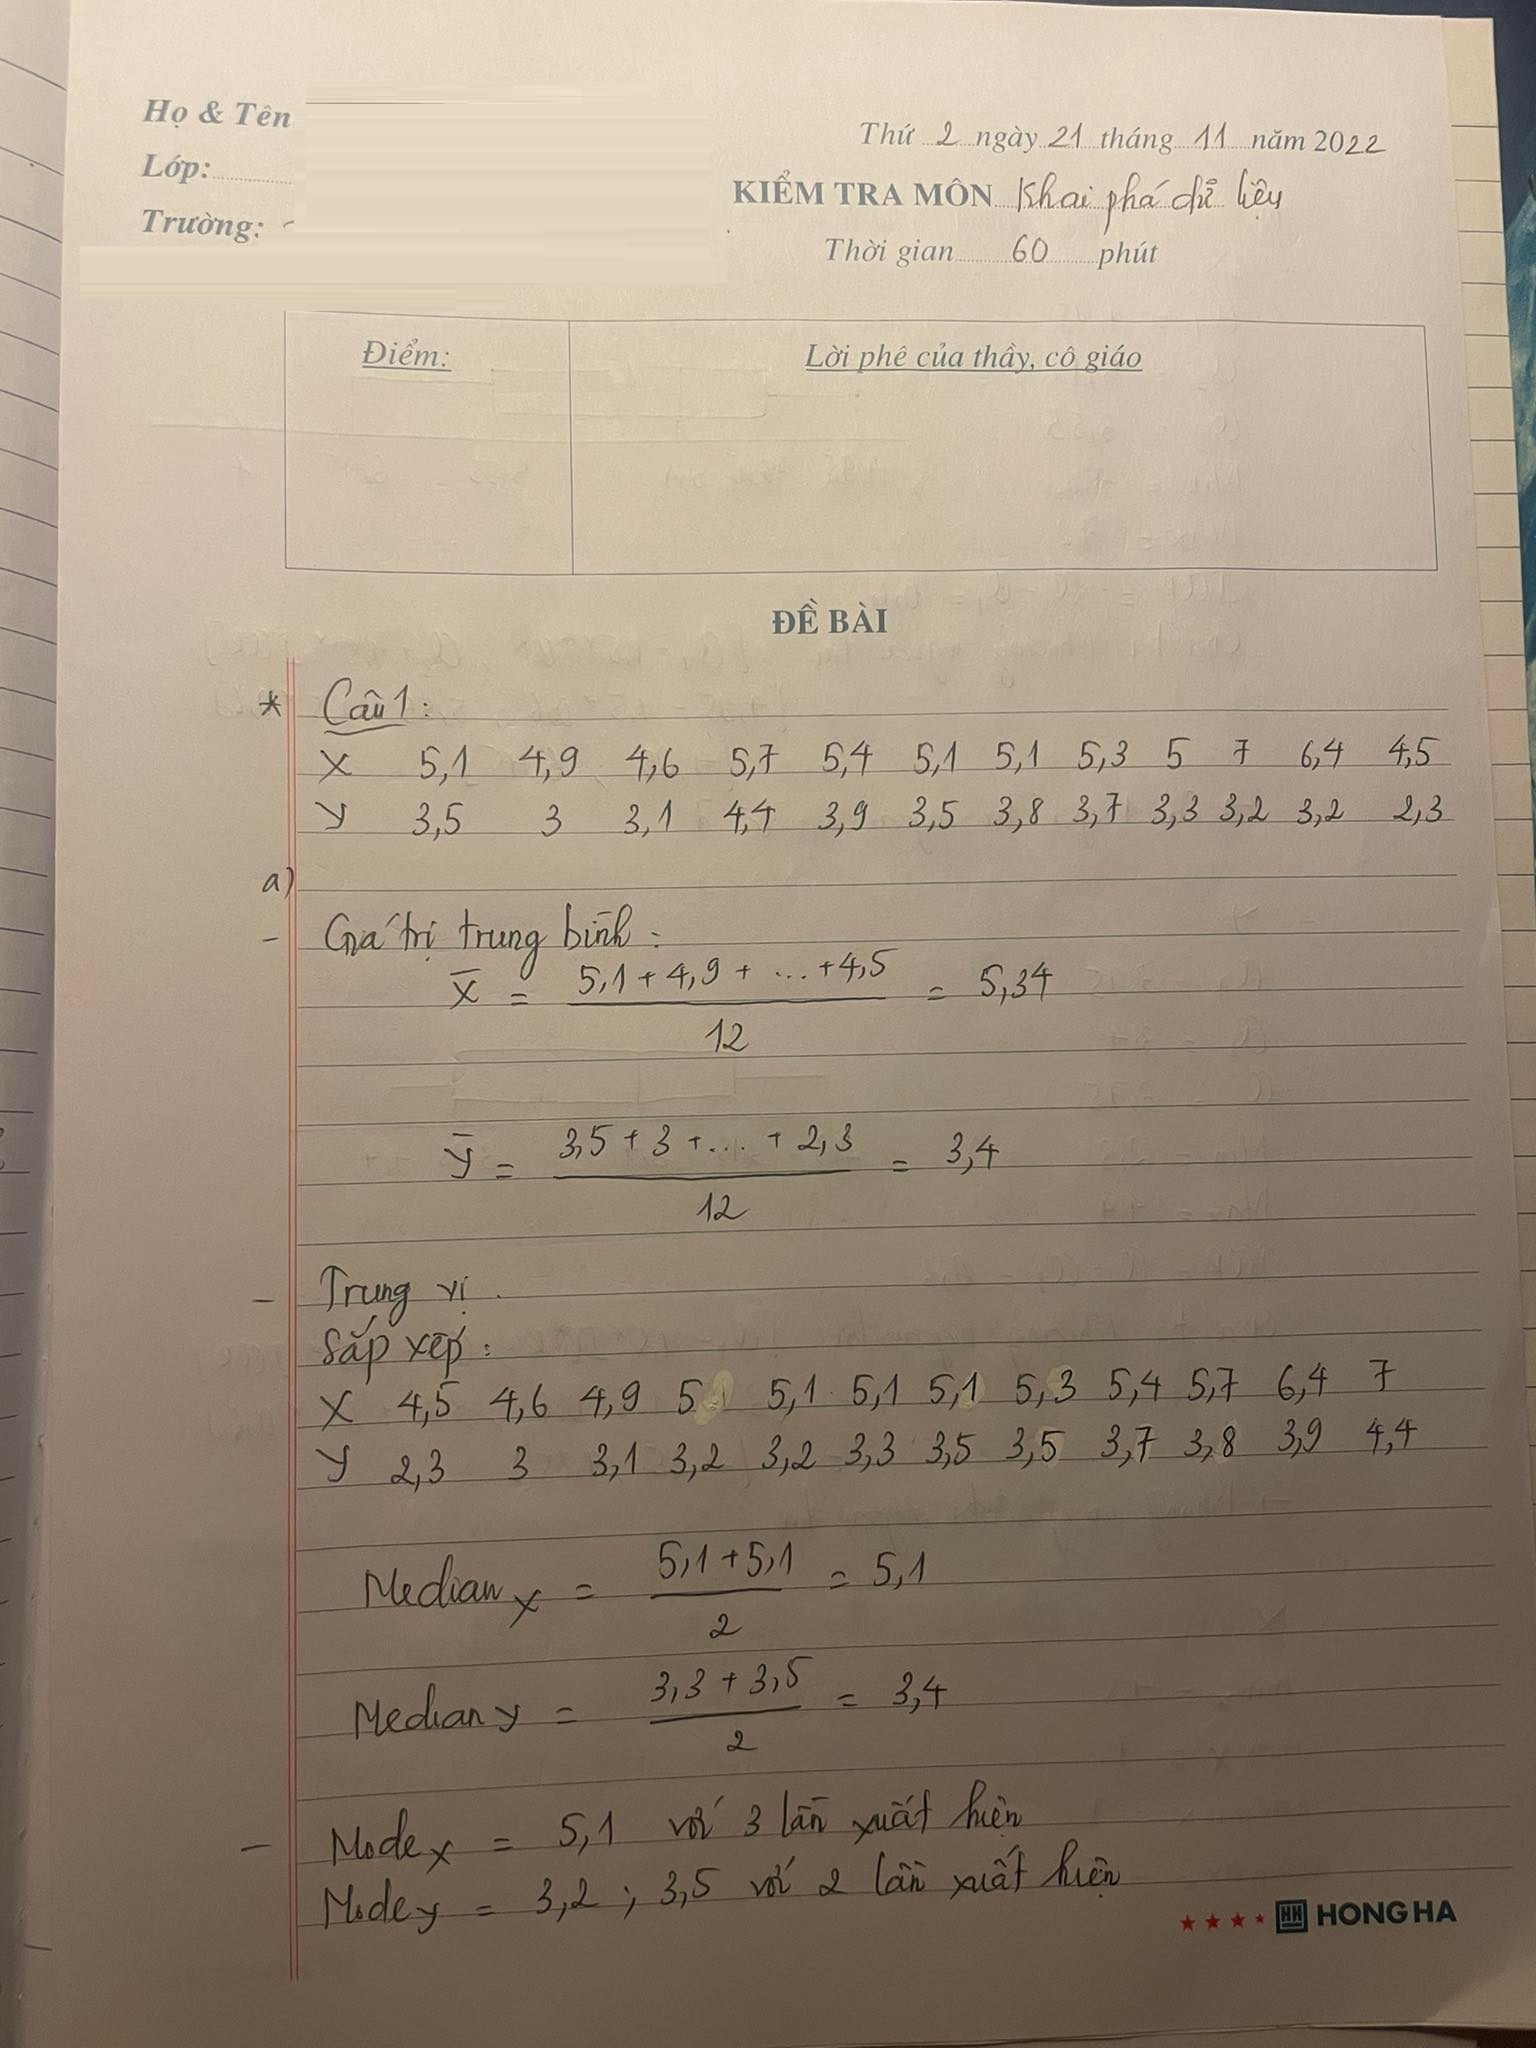 Họ & Tên
Lớp:
Trường:
Thứ 2 ngày 21 tháng 11 năm 2022
KIỂM TRA MÔN Khai phá dữ liệu
Thời gian 60 phút
Điểm:
Lời phê của thầy, cô giáo
ĐỀ BÀI
* Câu 1:
X 5,1 4,9 4,6 5,7 5,4 5,1 5,1 5,3 5 7 6,4 4,5
Y 3,5 3 3,1 4,4 3,9 3,5 3,8 3,7 3,3 3,2 3,2 2,3
a)
- Giá trị trung bình:
X̄ = (5,1 + 4,9 + ... + 4,5) / 12 = 5,34
Ȳ = (3,5 + 3 + ... + 2,3) / 12 = 3,4
- Trung vị.
Sắp xếp:
X 4,5 4,6 4,9 5 5,1 5,1 5,1 5,3 5,4 5,7 6,4 7
Y 2,3 3 3,1 3,2 3,2 3,3 3,5 3,5 3,7 3,8 3,9 4,4
Median X = (5,1 + 5,1) / 2 = 5,1
Median Y = (3,3 + 3,5) / 2 = 3,4
- Mode X = 5,1 với 3 lần xuất hiện
Mode Y = 3,2 ; 3,5 với 2 lần xuất hiện
HONG HA